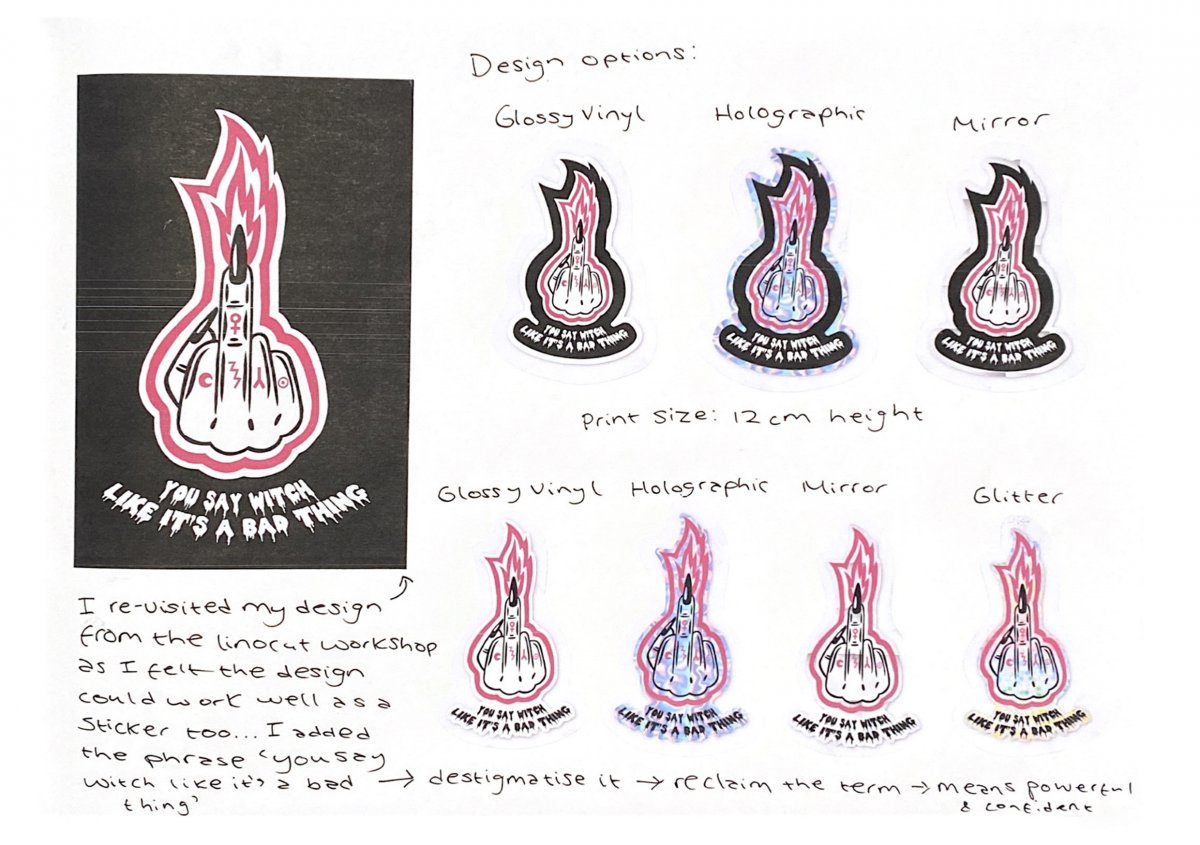 Design options:
Glossy Vinyl
Holographic
Mirror
YOU SAY WITCH
LIKE IT'S A BAD THING
YOU SAY WITCH
LIKE IT'S A BAD THING
YOU SAY WITCH
LIKE IT'S A BAD THING
Print Size: 12 cm height
YOU SAY WITCH
LIKE IT'S A BAD THING
Glossy Vinyl
Holographic
Mirror
Glitter
YOU SAY WITCH
LIKE IT'S A BAD THING
YOU SAY WITCH
LIKE IT'S A BAD THING
YOU SAY WITCH
LIKE IT'S A BAD THING
YOU SAY WITCH
LIKE IT'S A BAD THING
I re-visited my design
from the linocut workshop
as I felt the design
could work well as a
Sticker too... I added
the phrase 'you say
witch like it's a bad → destigmatise it → reclaim the term → means powerful
thing'
& confident